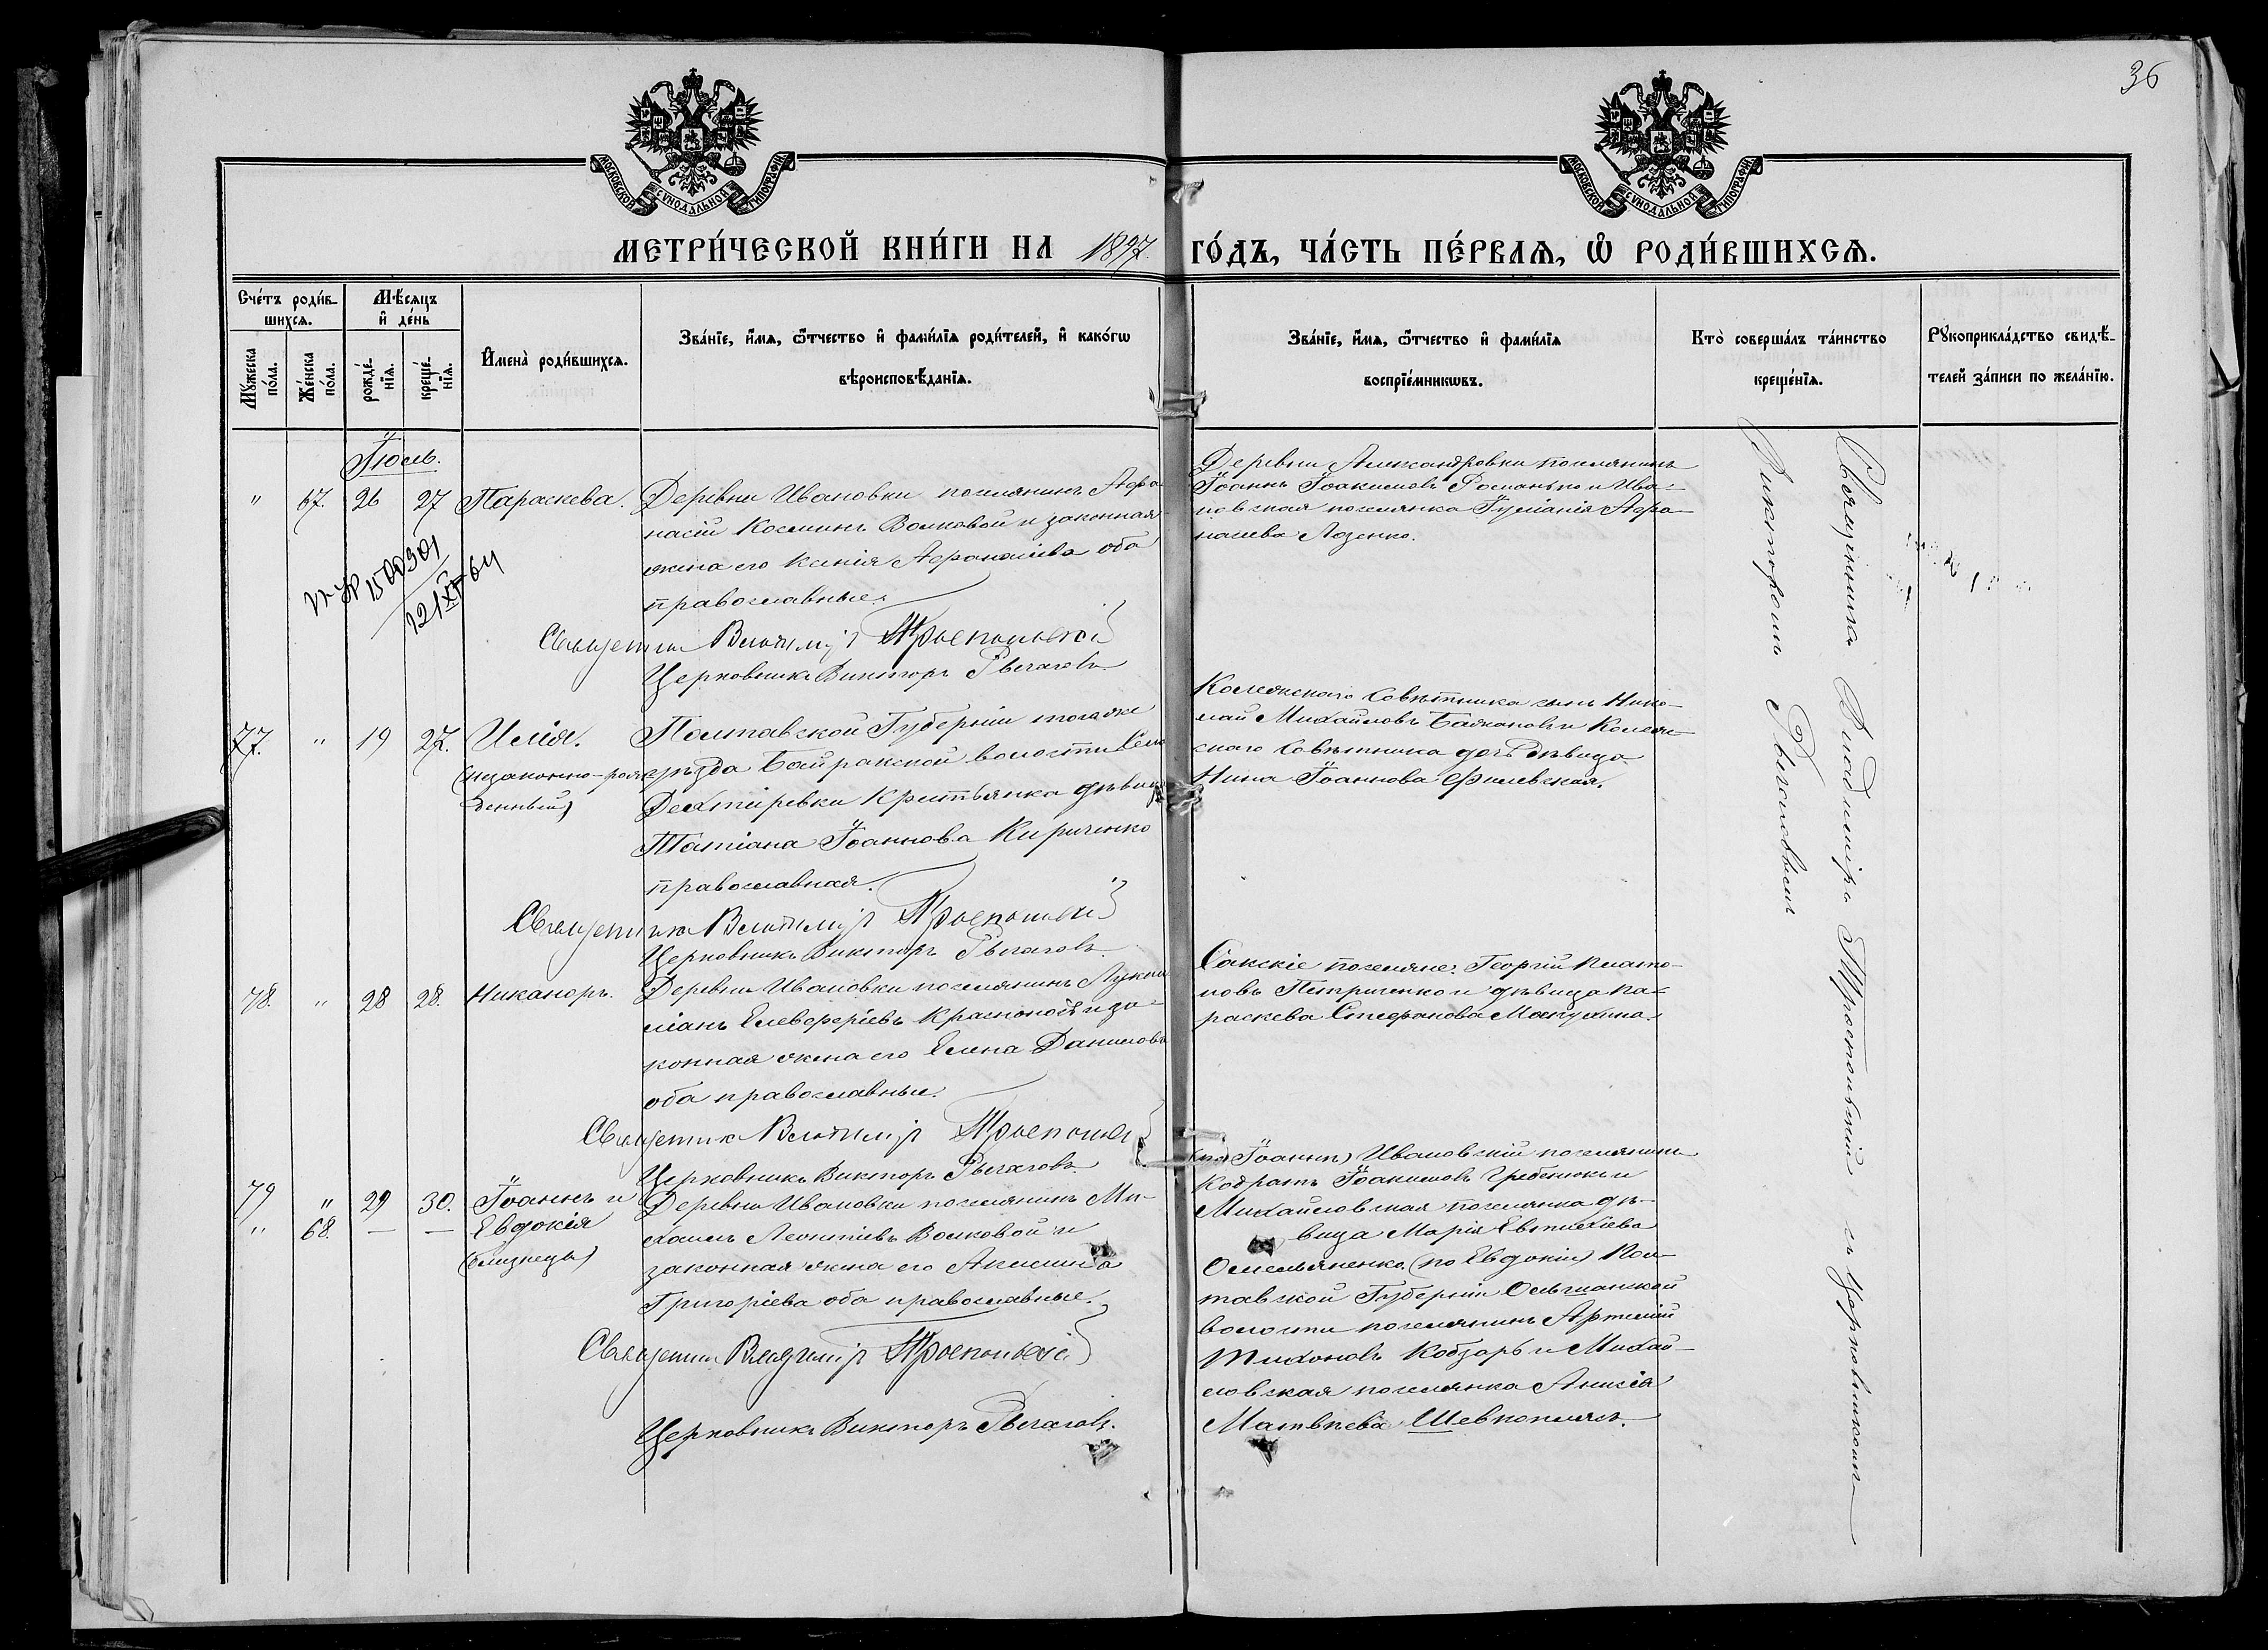 36
МОСКОВСКОЙ СѴНОДАЛЬНОЙ ТИПОГРАФІИ
МОСКОВСКОЙ СѴНОДАЛЬНОЙ ТИПОГРАФІИ
МЕТРИ́ЧЕСКОЙ КНИ́ГИ НА 1897. ГО́ДЪ, ЧА́СТЬ ПЕ́РВАЯ, Ѡ РОДИ́ВШИХСЯ.
Сче́тъ роди́в-
шихся.
Мѣ́сяцъ
и де́нь
Мꙋ́жеска по́ла.
Же́нска по́ла.
рожде́-
нїя.
креще́-
нїя.
Имена̀ роди́вшихся.
Зва́нїе, и́мя, ѻ́тчество и фами́лїя роди́телей, и како́гѡ
вѣроисповѣ́данїя.
Зва́нїе, и́мя, ѻ́тчество и фами́лїя
воспрїе́мникѡвъ.
Кто̀ соверша́лъ та́инство
креще́нїя.
Рꙋкоприкла́дство свидѣ́-
телей за́писи по жела́нїю.
Іюль.
" 67. 26 27 Параскева.
Деревни Ивановки поселянинъ Афа-
насій Косминъ Волковой и законная
жена его Ксенія Афанасіева оба
православные.
Священникъ Владиміръ Троепольскій
Церковникъ Викторъ Рыгаловъ.
Деревни Александровки поселянинъ
Іоаннъ Іоакимовъ Романько и Ива-
новская поселянка Іуліанія Афа-
насіева Лозенко.
77. " 19 27. Илія.
(незаконно-рож-
денный)
Полтавской Губерніи того же
уѣзда Байракской волости села
Дехтіревки крестьянка дѣвица
Татіана Іоаннова Кириченко
православная.
Священникъ Владиміръ Троепольскій
Церковникъ Викторъ Рыгаловъ.
Коллежскаго Совѣтника сынъ Нико-
лай Михайловъ Балкановъ и Коллеж-
скаго Совѣтника дочь дѣвица
Нина Іоаннова Филевская.
78. " 28 28. Никаноръ.
Деревни Ивановки поселянинъ Луки-
ліанъ Елевферіевъ Красноносъ и за-
конная жена его Елена Данилова
оба православные.
Священникъ Владиміръ Троепольскій
Церковникъ Викторъ Рыгаловъ.
Сакскіе поселяне: Георгій Плато-
новъ Петриченко и дѣвица Па-
раскева Стефанова Макухина.
79 " 29 30. Іоаннъ и
" 68. — — Евдокія
(близнецы)
Деревни Ивановки поселянинъ Ми-
хаилъ Леонтіевъ Волковой и
законная жена его Акилина
Григоріева оба православные.
Священникъ Владиміръ Троепольскій
Церковникъ Викторъ Рыгаловъ.
(по Іоаннѣ) Ивановскій поселянинъ
Кодратъ Іоакимовъ Гребенюкъ и
Михайловская поселянка дѣ-
вица Марія Евтихіева
Омельяненко, (по Евдокіи) Пол-
тавской Губерніи Ольшанской
волости поселянинъ Артемій
Тихоновъ Кобзарь и Михай-
ловская поселянка Анисія
Матвѣева Шевкоплясъ.
Священникъ Владиміръ Троепольскій и церковникомъ
Викторомъ Рыгаловымъ